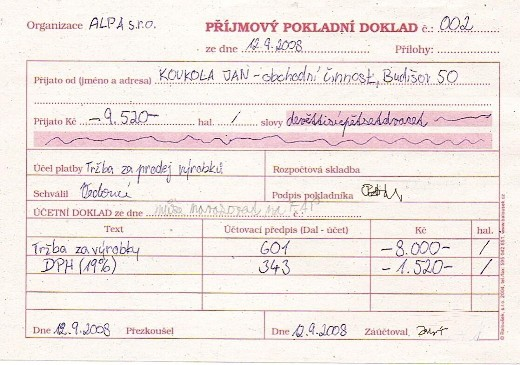 Organizace ALPA s.r.o. PŘÍJMOVÝ POKLADNÍ DOKLAD č.: 002
ze dne 12.9.2008 Přílohy:
Přijato od (jméno a adresa) KOUKOLA JAN - obchodní činnost, Budišov 50
Přijato Kč -9.520- hal. / slovy devěttisícpětsetdvacet
Účel platby Tržba za prodej výrobků Rozpočtová skladba
Schválil Vedoucí Podpis pokladníka
ÚČETNÍ DOKLAD ze dne č.
Text Účtovací předpis (Dal - účet) Kč hal.
Tržba za výrobky 601 -8.000- /
DPH (19%) 343 -1.520- /
Dne 12.9.2008 Přezkoušel Dne 12.9.2008 Zaúčtoval